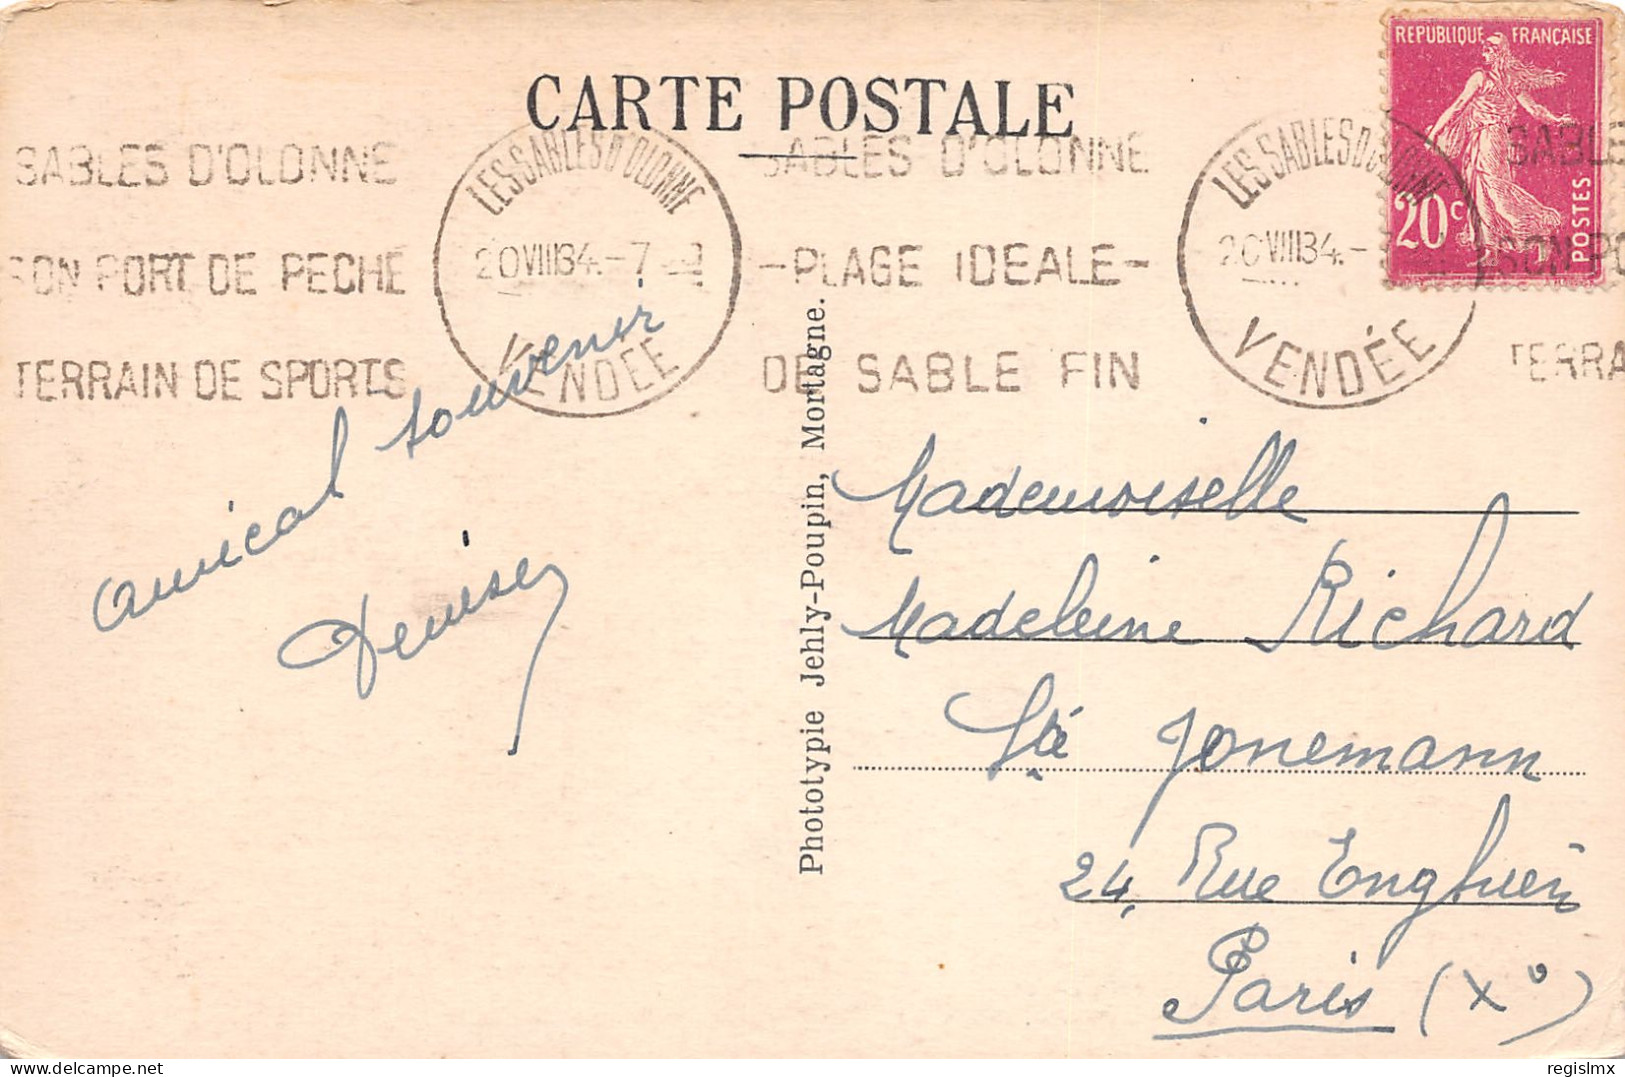 CARTE POSTALE
REPUBLIQUE FRANÇAISE
20c
POSTES
SABLES D'OLONNE
SON PORT DE PECHE
TERRAIN DE SPORTS
LES SABLES D'OLONNE
20 VIII 34 - 7
VENDÉE
SABLES D'OLONNE
-PLAGE IDEALE-
DE SABLE FIN
LES SABLES D'OLONNE
20 VIII 34 -
VENDÉE
SABLE
SON PO
TERRA
amical souvenir
Denise
Phototypie Jehly-Poupin, Mortagne.
Mademoiselle
Madeleine Richard
Sté Jonemann
24, Rue Enghien
Paris (Xº)
delcampe.net
regislmx